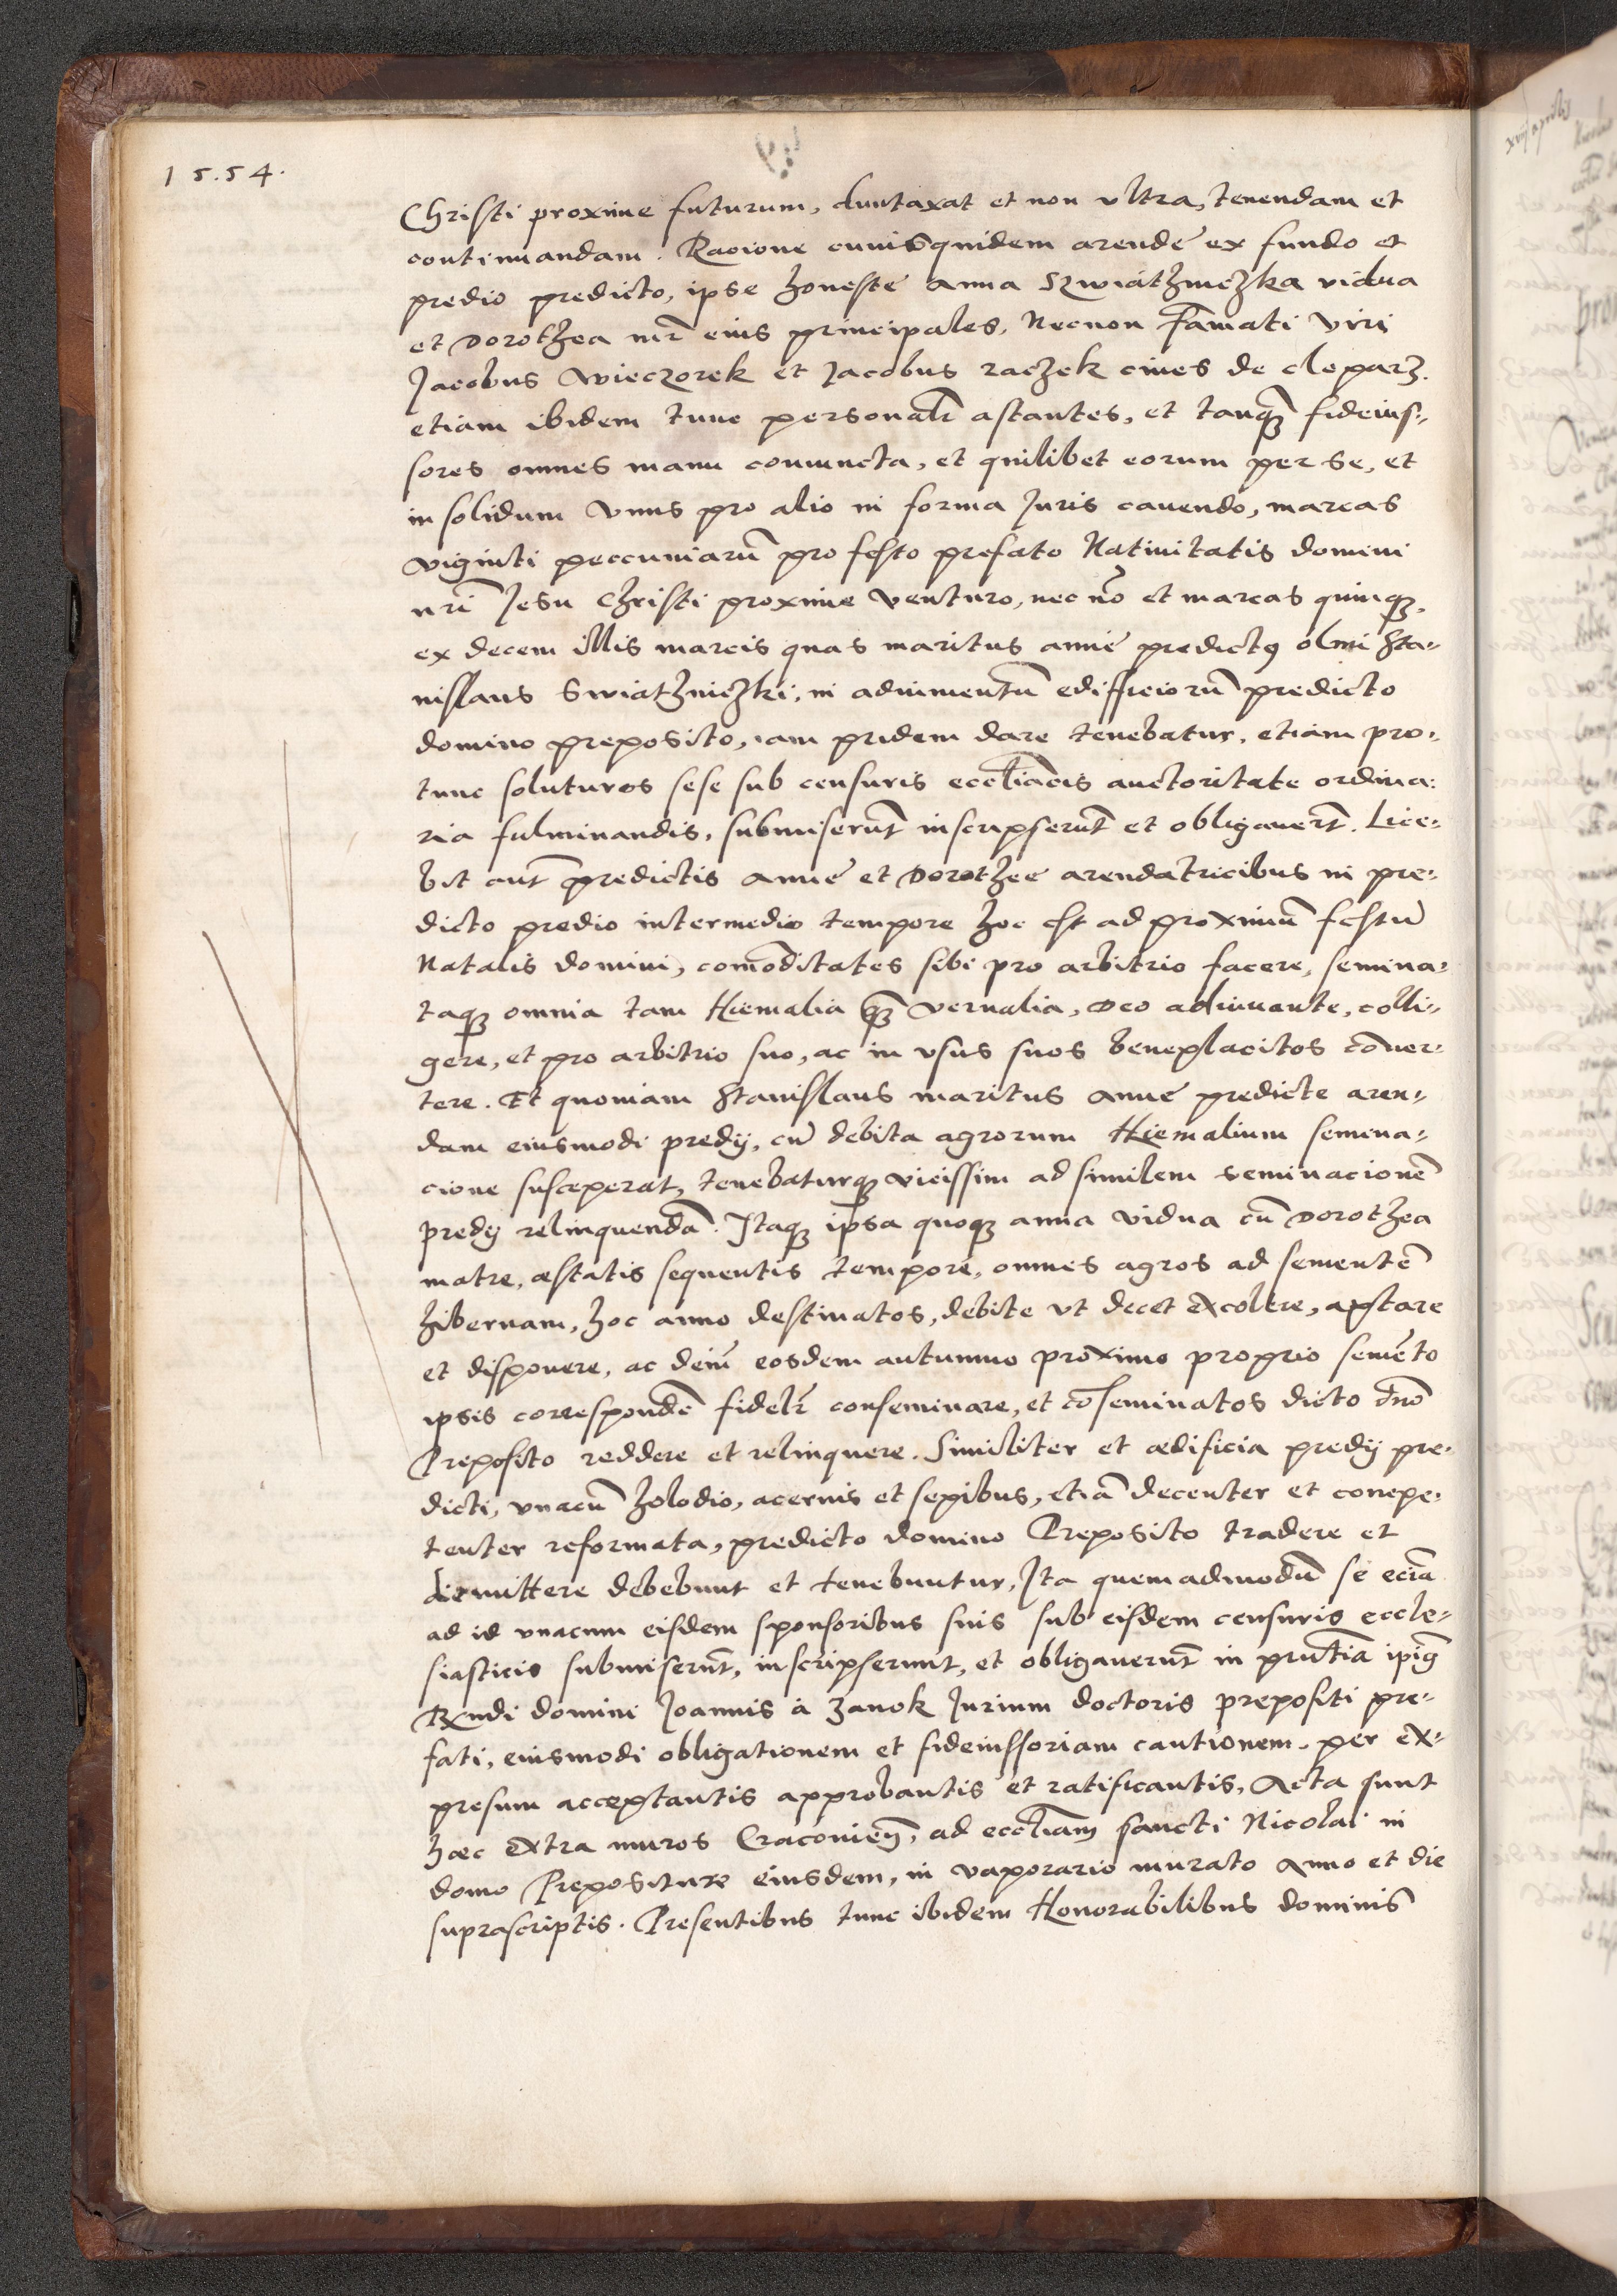 1554.
Christi proxime futurum, duntaxat et non vltra, tenendam et
continuandam. Racione cuiusquidem arendę ex fundo et
predio predicto, ipsę honestę Anna Szwiathniczka vidua
et Dorothea mr̃ eius principales, Necnon Famati viri
Jacobus Wieczorek et Jacobus raczek ciues de cleparz.
etiam ibidem tunc personalr̃ astantes, et tanqꝫ fideius-
sores omnes manu coniuncta, et quilibet eorum per se, et
in solidum vnus pro alio in forma Juris cauendo, marcas
viginti peccuniarũ pro festo prefato Natiuitatis domini
nr̃i Jesu Christi proxime venturo, nec nõ et marcas quinqꝫ
ex decem illis marcis quas maritus annę predictꝰ olim Sta-
nislaus Swiathniczki, in adiumentũ edifficiorũ predicto
domino preposito, iam pridem dare tenebatur, etiam pro-
tunc soluturos sese sub censuris eccl̃iacis auctoritate ordina-
ria fulminandis, submiserũt inscripserũt et obligauerũt. Lice-
bit aut̃ predictis Annę et Dorotheę arendatricibus in pre-
dicto predio intermedio tempore hoc est ad proximũ festũ
Natalis domini, com̃oditates sibi pro arbitrio facere, semina-
taqꝫ omnia tam Hiemalia qꝫ vernalia, Deo adiuuante, colli-
gere, et pro arbitrio suo, ac in vsus suos beneplacitos cõuer-
tere. Et quoniam Stanislaus maritus Annę predicte aren-
dam eiusmodi predij, cũ debita agrorum Hiemalium semina-
cione susceperat, tenebaturqꝫ vicissim ad similem seminacionẽ
predij relinquendã. Itaqꝫ ipsa quoqꝫ anna vidua cũ Dorothea
matre, æstatis sequentis tempore, omnes agros ad sementẽ
hibernam, hoc anno destinatos, debite vt decet excolere, aptare
et disponere, ac dein̄ eosdem autumno proximo proprio semẽto
ipsis correspondẽ fidelr̃ conseminare, et cõseminatos dicto dño
Preposito reddere et relinquere. Similiter et ædificia predij pre-
dicti, vnacũ holodio, acernis et sepibus, etiã decenter et conpe-
tenter reformata, predicto domino Preposito tradere et
dimittere debebunt et tenebuntur, Ita quemadmodũ se eciã
ad id vnacum eisdem sponsoribus suis sub eisdem censuris eccle-
siasticis submiserũt, inscripserunt, et obligauerũt in pñtia ipiꝰ
Rñdi domini Joannis à Zanok Jurium doctoris prepositi pre-
fati, eiusmodi obligationem et fideiussoriam cautionem, per ex-
presum acceptantis approbantis et ratificantis, Acta sunt
hæc extra muros Cracovien̄, ad eccl̃iam sancti Nicolai in
domo Præpositure eiusdem, in vaporario murato Anno et die
suprascriptis. Presentibus tunc ibidem Honorabilibus dominis